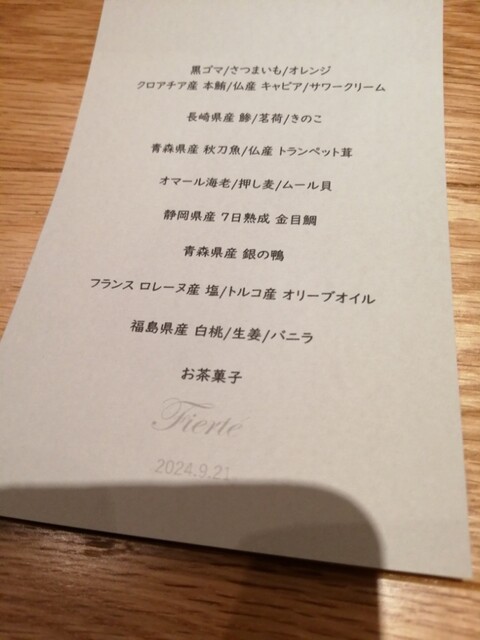 黒ゴマ/さつまいも/オレンジ
クロアチア産 本鮪/仏産 キャビア/サワークリーム
長崎県産 鰺/茗荷/きのこ
青森県産 秋刀魚/仏産 トランペット茸
オマール海老/押し麦/ムール貝
静岡県産 7日熟成 金目鯛
青森県産 銀の鴨
フランス ロレーヌ産 塩/トルコ産 オリーブオイル
福島県産 白桃/生姜/バニラ
お茶菓子
Fierté
2024.9.21.